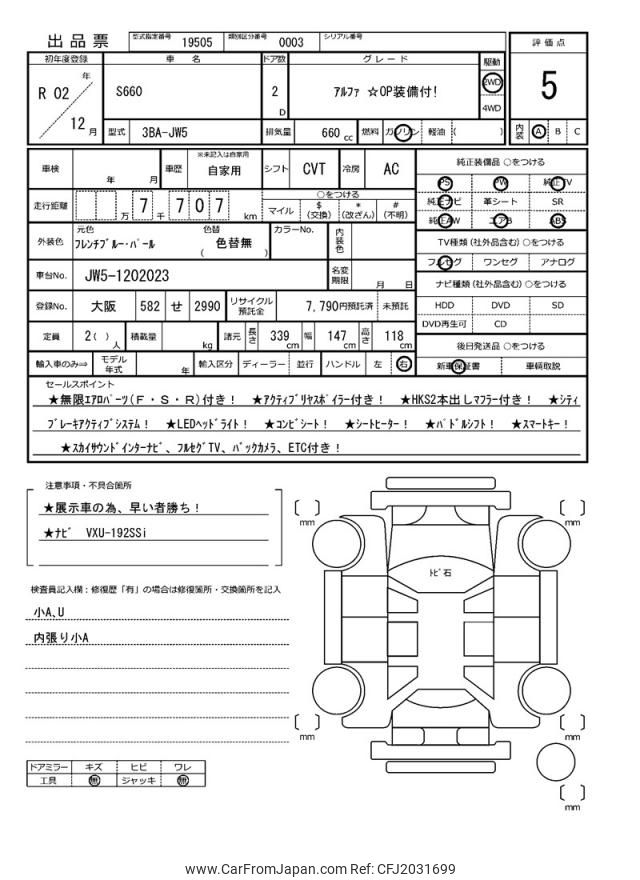 出品票 型式指定番号 19505 類別区分番号 0003 シリアル番号
初年度登録 車名 ドア数 グレード 駆動 評価点
R 02 年 12 月 S660 2 D アルファ ☆OP装備付! 2WD 4WD 5
型式 3BA-JW5 排気量 660 cc 燃料 ガソリン 軽油 ( ) 内装 A B C
車検 年 月 車歴 ※未記入は自家用 自家用 シフト CVT 冷房 AC 純正装備品 ○をつける
PS PW 純正TV
走行距離 万 7 千 7 0 7 km ○をつける
マイル $ (交換) * (改ざん) # (不明)
純正ナビ 革シート SR
純正AW エアB ABS
外装色 元色 フレンチブルー・パール 色替 ( 色替無 ) カラーNo. 内装色
TV種類(社外品含む)○をつける
フルセグ ワンセグ アナログ
車台No. JW5-1202023 名変期限 月 日
ナビ種類(社外品含む)○をつける
登録No. 大阪 582 せ 2990 リサイクル預託金 7,790円預託済 未預託
HDD DVD SD
DVD再生可 CD
定員 2( ) 人 積載量 kg 諸元 長さ 339 cm 幅 147 cm 高さ 118 cm
後日発送品 ○をつける
輸入車のみ⇒ モデル年式 年 輸入区分 ディーラー 並行 ハンドル 左 右
新車保証書 車輌取説
セールスポイント
★無限エアロパーツ(F・S・R)付き! ★アクティブリヤスポイラー付き! ★HKS2本出しマフラー付き! ★シティ
ブレーキアクティブシステム! ★LEDヘッドライト! ★コンビシート! ★シートヒーター! ★パドルシフト! ★スマートキー!
★スカイサウンドインターナビ、フルセグTV、バックカメラ、ETC付き!
注意事項・不具合箇所
★展示車の為、早い者勝ち!
★ナビ VXU-192SSi
検査員記入欄:修復歴「有」の場合は修復箇所・交換箇所を記入
小A、U
内張り小A
トビ石
mm
mm
mm
mm
mm
ドアミラー キズ ヒビ ワレ
工具 無 ジャッキ 無
www.CarFromJapan.com Ref: CFJ2031699